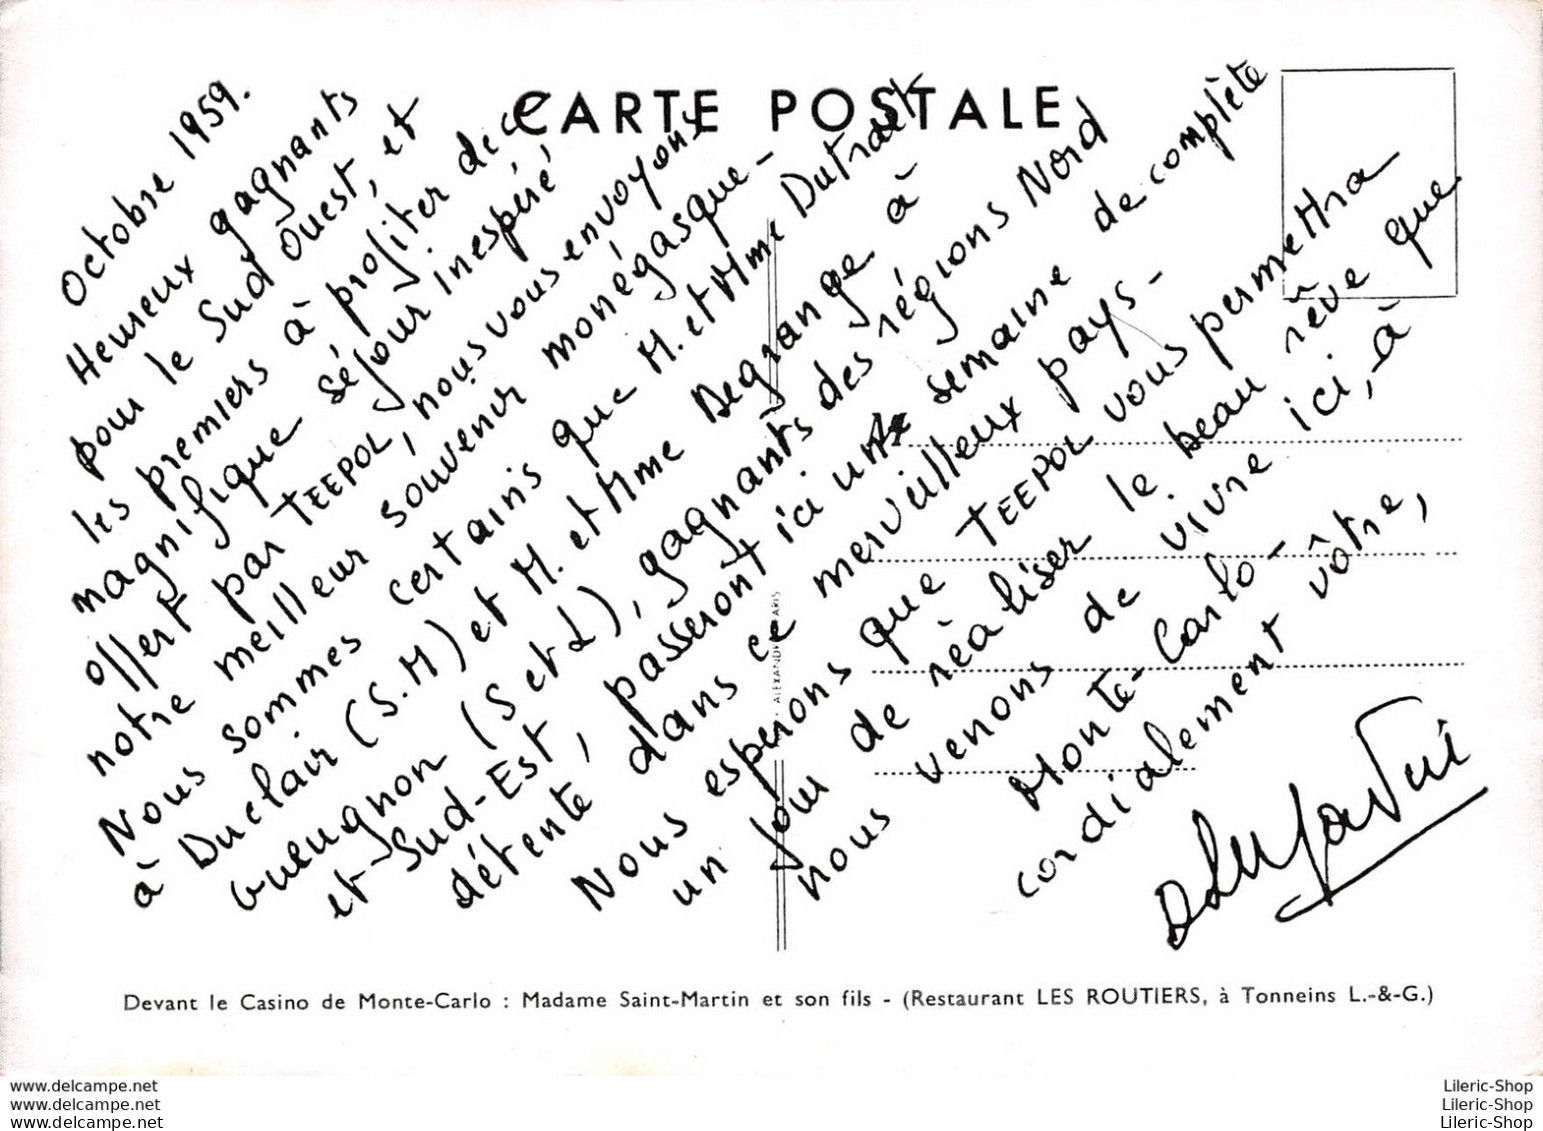 CARTE POSTALE
Octobre 1959.
Heureux gagnants
pour le Sud Ouest, et
les premiers à profiter de ce
magnifique séjour inespéré,
offert par TEEPOL, nous vous envoyons
notre meilleur souvenir monégasque -
Nous sommes certains que M. et Mme Dutrait
à Duclair (S.M) et M. et Mme Degrange à
Gueugnon (S et L), gagnants des régions Nord
et Sud-Est, passeront ici une semaine de complète
détente dans ce merveilleux pays -
Nous esperons que TEEPOL vous permettra
un jour de réaliser le beau rêve que
nous venons de vivre ici, à
Monte-Carlo -
cordialement vôtre,
ALEXANDRE PARIS
Devant le Casino de Monte-Carlo : Madame Saint-Martin et son fils - (Restaurant LES ROUTIERS, à Tonneins L.-&-G.)
www.delcampe.net
www.delcampe.net
www.delcampe.net
Lileric-Shop
Lileric-Shop
Lileric-Shop